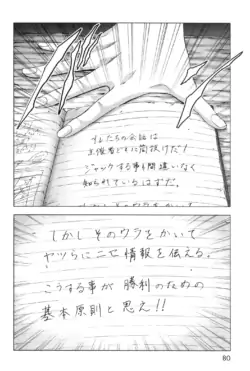 私たちの会話は
主催者どもに筒抜けだ!
ジャックする事も間違いなく
知られているはずだ。
しかしそのウラをかいて
ヤツらにニセ情報を伝える。
こうする事が勝利のための
基本原則と思え!!
80